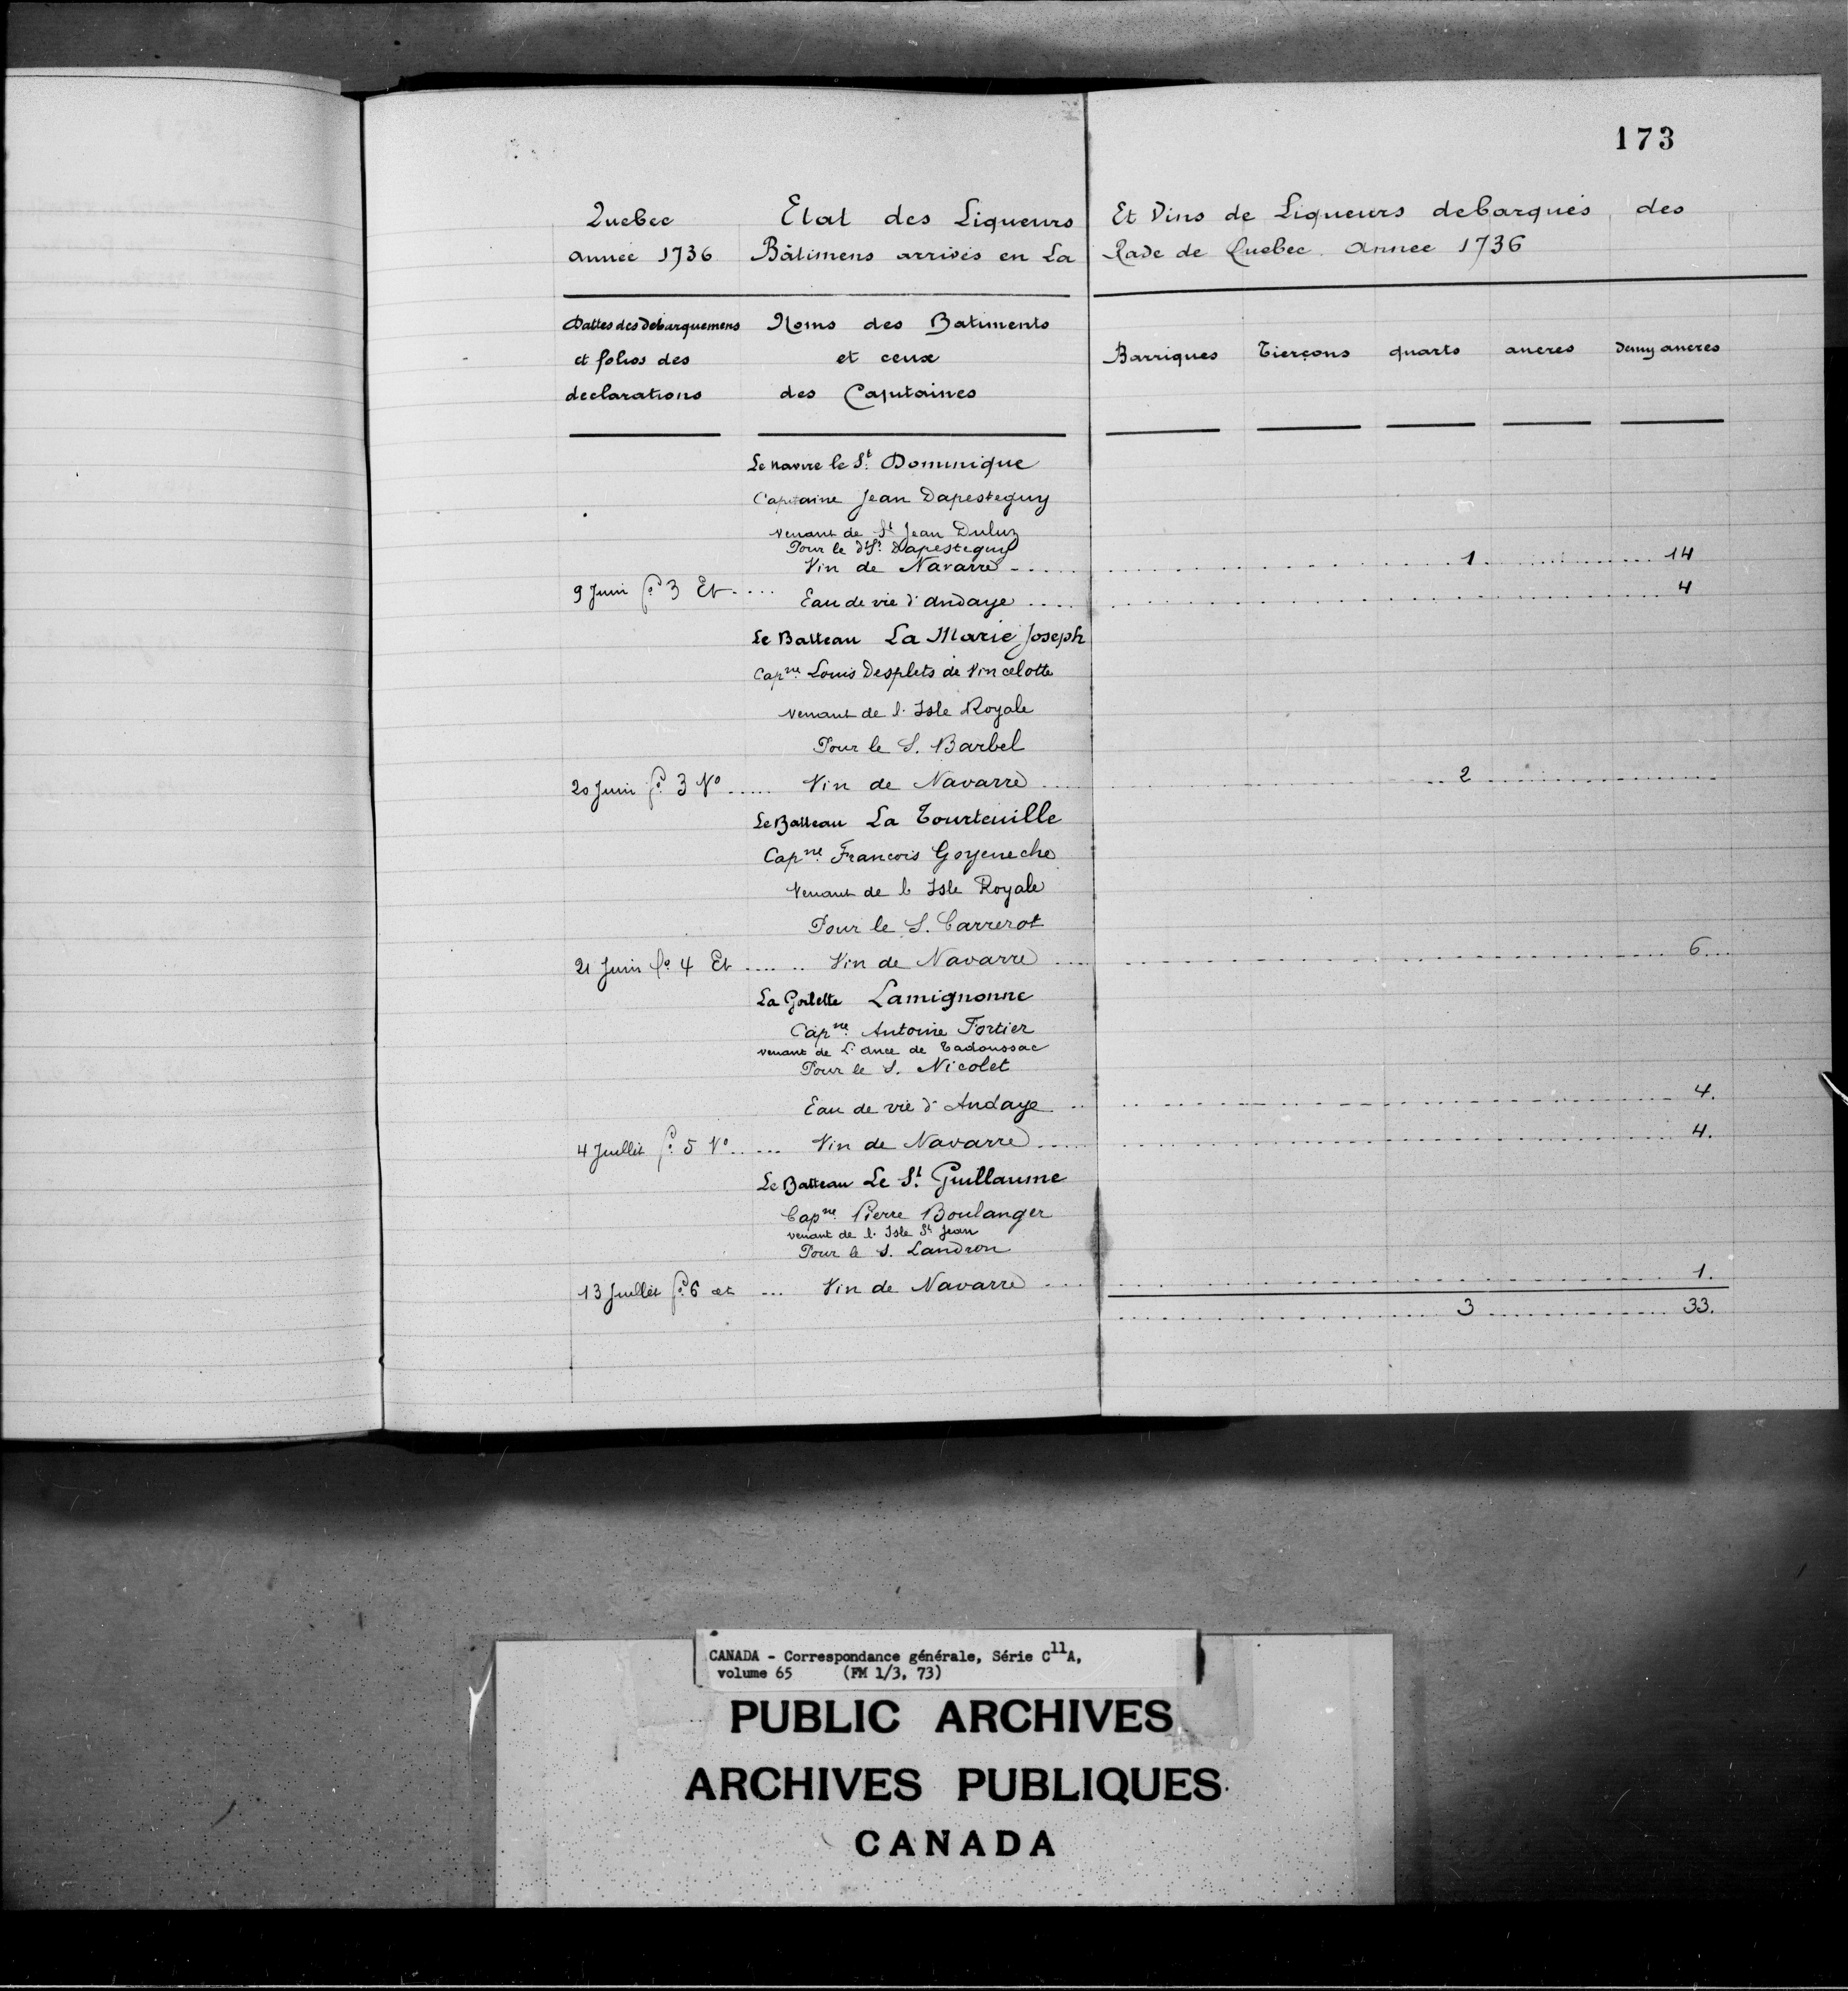 173
Quebec Etat des Liqueurs Et Vins de Liqueurs debarqués des
année 1736 Bâtimens arrivés en La Rade de Quebec. Annee 1736
Dattes des debarquemens Noms des Batiments
et folios des et ceux Barriques Tierçons quarts ancres demy ancres
declarations des Capitaines
Le navire le St. Dominique
Capitaine Jean Dapesteguy
venant de St Jean Duluz
Pour le dt S. Dapesteguy
Vin de Navarre ... 1 ... 14
9 Juin fo. 3 Et .... Eau de vie d'andaye .... 4
Le Batteau La Marie Joseph
Capne. Louis Desplets de Vincelotte
venant de l'Isle Royale
Pour le S. Barbel
20 Juin fo. 3 Vo ..... Vin de Navarre ... 2 ...
Le Batteau La Tourteuille
Capne. Francois Goyeneche
Venant de l'Isle Royale
Pour le S. Carrerot
21 Juin fo. 4 Et ..... Vin de Navarre ... 6...
La Goilette Lamignonne
Capne. Antoine Fortier
venant de L'ance de Tadoussac
Pour le S. Nicolet
Eau de vie d'Andaye ... 4.
4 Juillet fo. 5 Vo. .... Vin de Navarre ... 4.
Le Batteau Le St. Guillaume
Capne. Pierre Boulanger
venant de l'Isle St Jean
Pour le S. Landron
13 Juillet fo. 6 et ... Vin de Navarre ... 1.
... 3 ... 33.
CANADA - Correspondance générale, Série C11A,
volume 65 (FM 1/3, 73)
PUBLIC ARCHIVES
ARCHIVES PUBLIQUES
CANADA